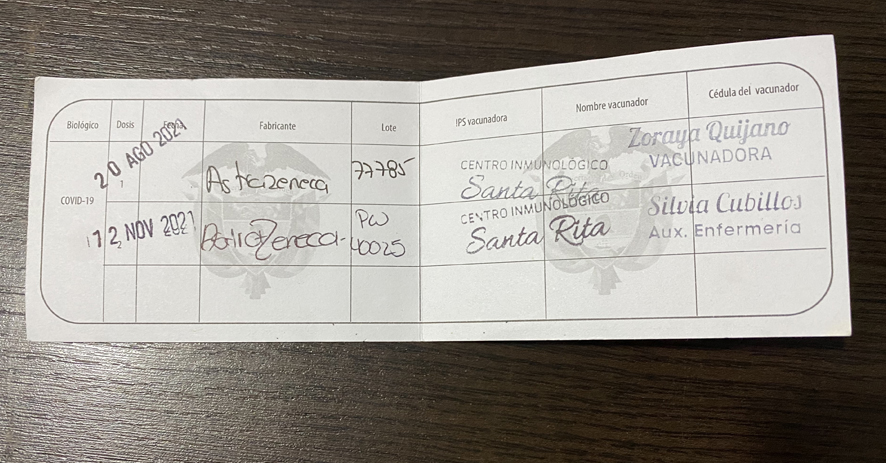 Biológico Dosis Fecha Fabricante Lote IPS vacunadora Nombre vacunador Cédula del vacunador
20 AGO 2021 1 AstraZeneca 77785 CENTRO INMUNOLÓGICO Santa Rita Zoraya Quijano VACUNADORA
COVID-19
12 NOV 2021 2 AstraZeneca PW 40025 CENTRO INMUNOLÓGICO Santa Rita Silvia Cubillos Aux. Enfermería